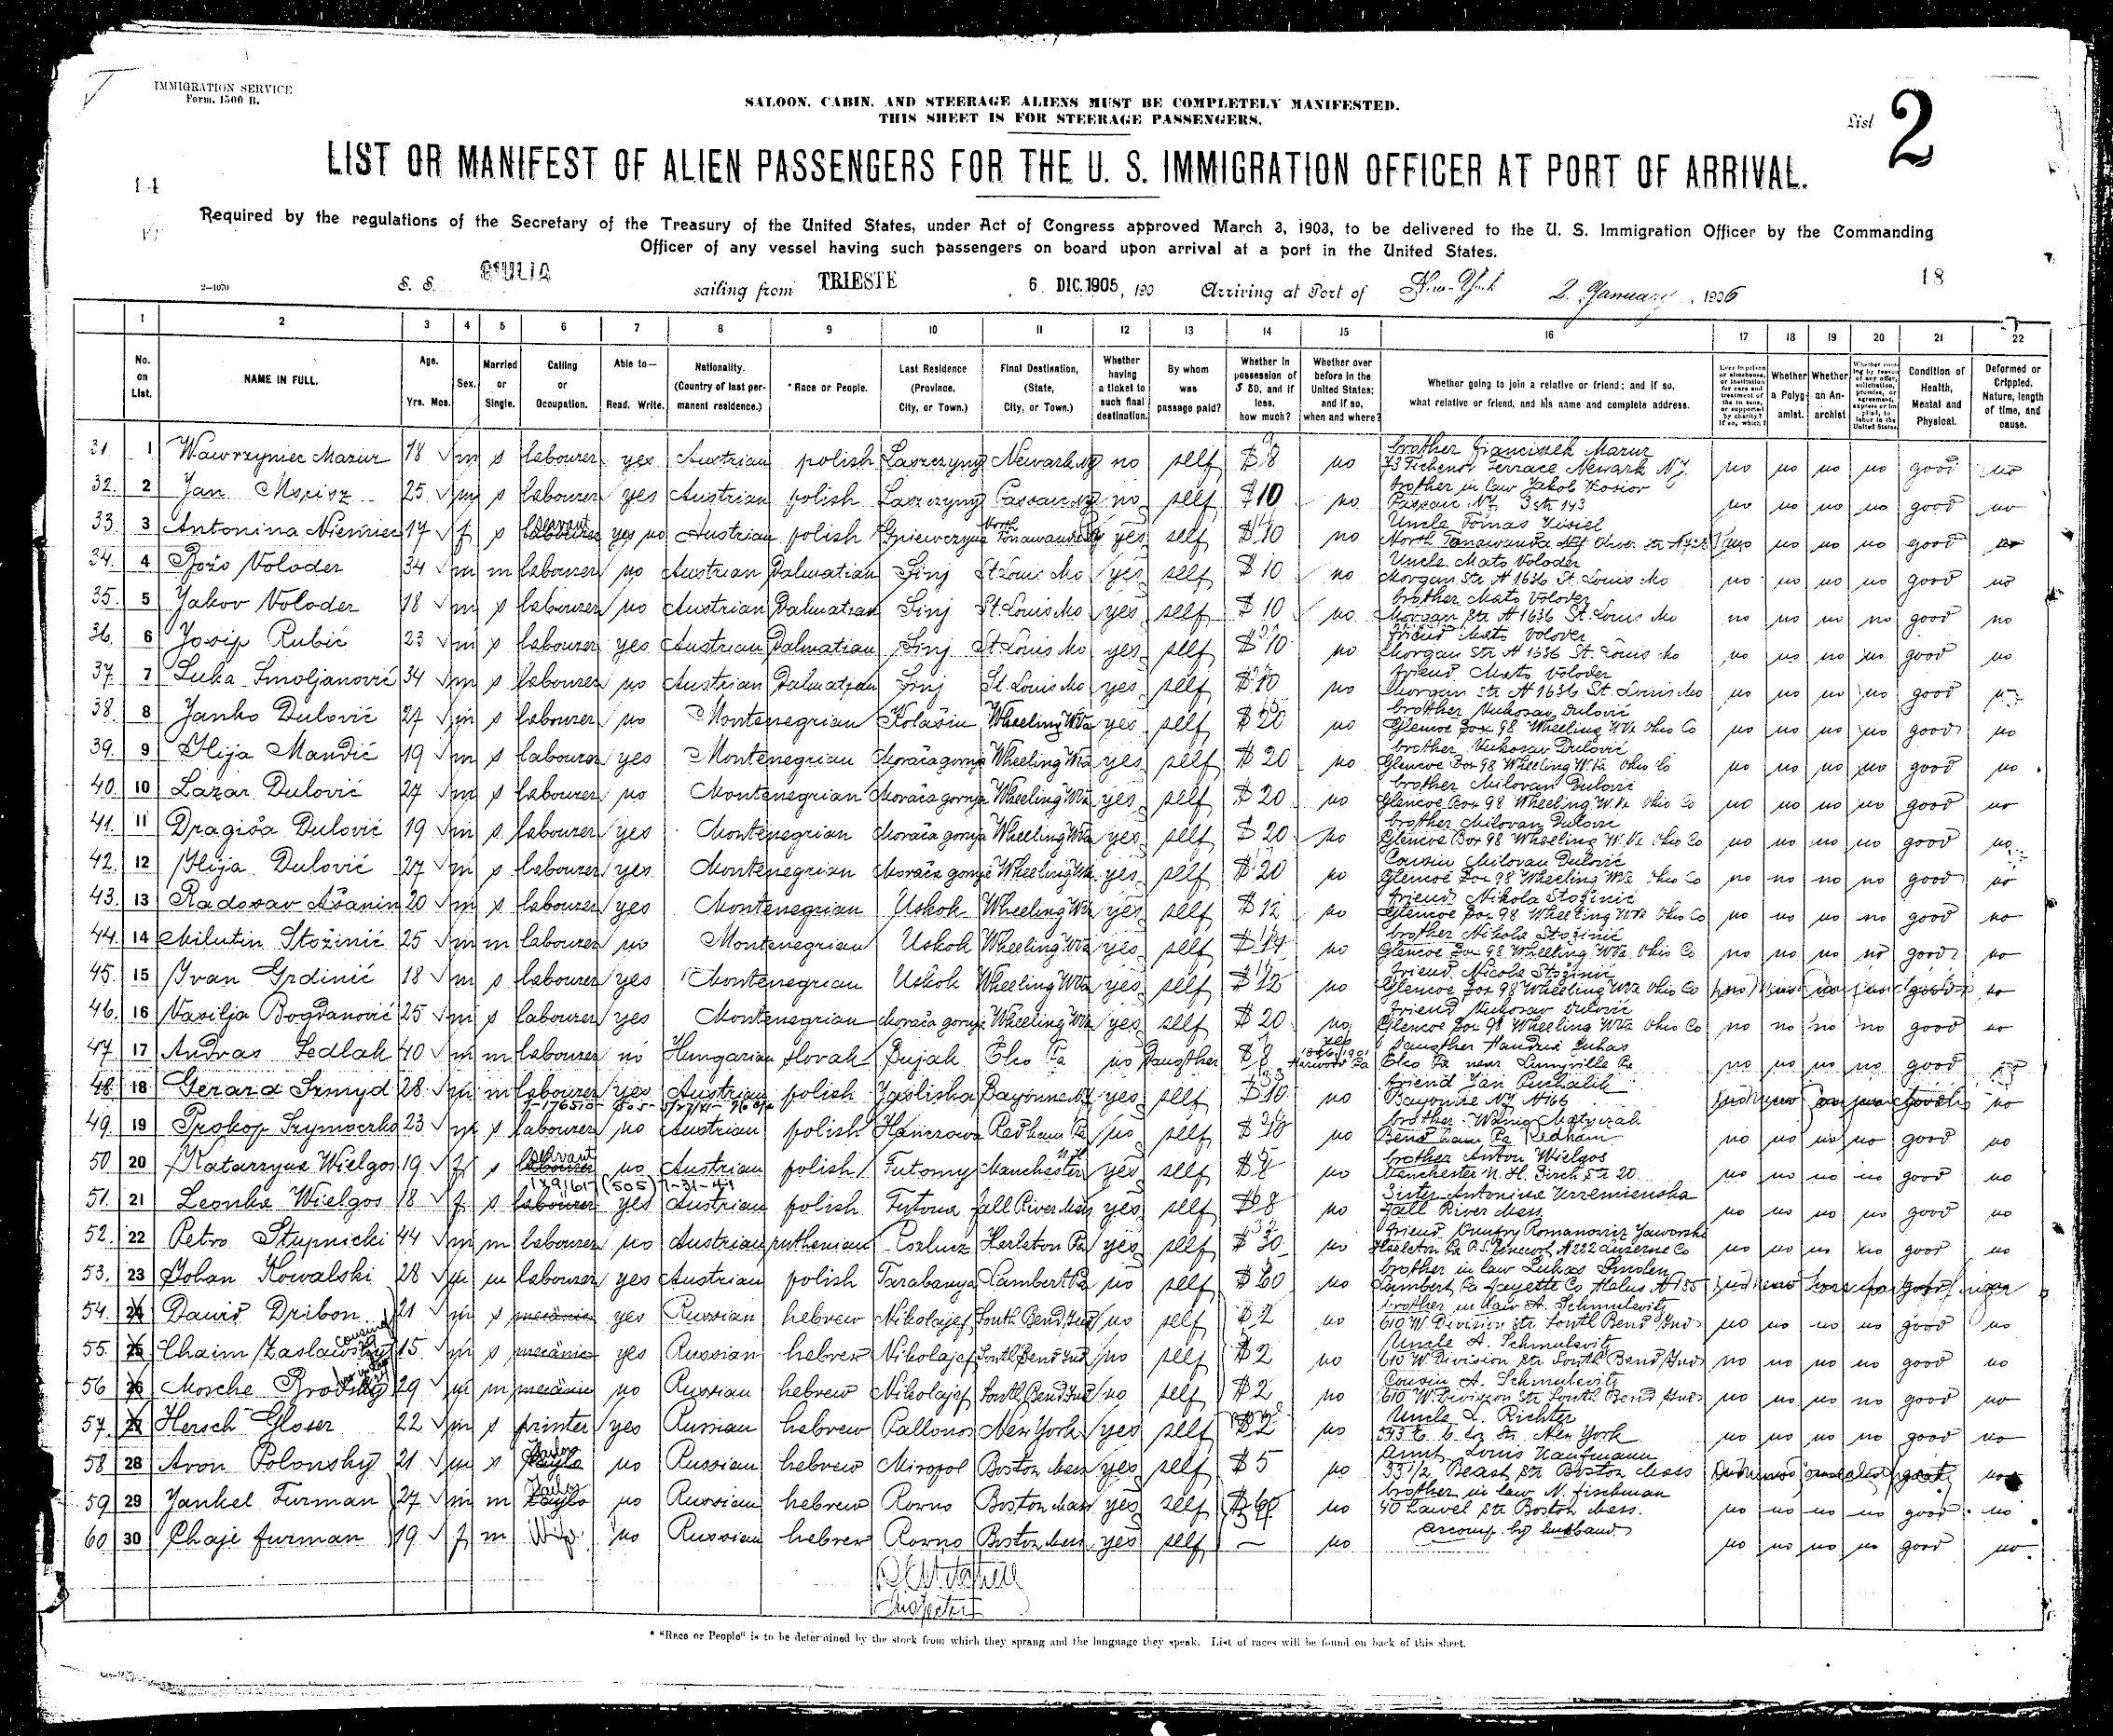 IMMIGRATION SERVICE
Form. 1500 B.
SALOON, CABIN, AND STEERAGE ALIENS MUST BE COMPLETELY MANIFESTED.
THIS SHEET IS FOR STEERAGE PASSENGERS.
List 2
LIST OR MANIFEST OF ALIEN PASSENGERS FOR THE U. S. IMMIGRATION OFFICER AT PORT OF ARRIVAL.
14
Required by the regulations of the Secretary of the Treasury of the United States, under Act of Congress approved March 3, 1903, to be delivered to the U. S. Immigration Officer by the Commanding
Officer of any vessel having such passengers on board upon arrival at a port in the United States.
2—1070 S. S. GIULIA sailing from TRIESTE , 6 DIC. 1905, 190 Arriving at Port of New-York 2. January, 1906 18
1 2 3 4 5 6 7 8 9 10 11 12 13 14 15 16 17 18 19 20 21 22
No. on List. NAME IN FULL. Age. Yrs. Mos. Sex. Married or Single. Calling or Occupation. Able to— Read. Write. Nationality. (Country of last permanent residence.) *Race or People. Last Residence (Province, City, or Town.) Final Destination, (State, City, or Town.) Whether having a ticket to such final destination. By whom was passage paid? Whether in possession of $50, and if less, how much? Whether over before in the United States; and if so, when and where? Whether going to join a relative or friend; and if so, what relative or friend, and his name and complete address. Whether a Polygamist. Whether an Anarchist Condition of Health, Mental and Physical. Deformed or Crippled. Nature, length of time, and cause.
31. 1 Wawrzyniec Mazur 18 m s labourer yes Austrian polish Newark no self $8 no brother Franciszek Mazur
Terrace Newark N.J. no no no no good no
32. 2 Jan 25 m s labourer yes Austrian polish no self $10 no brother in law Jakob Kosior
Passaic 3 str 143 no no no no good no
33. 3 Antonina Niemiec 17 f s servant yes no Austrian polish North Tonawanda yes self $10 no Uncle Tomas Kisiel
North Tonawanda no no no good no
34. 4 Božo Voloder 34 m m labourer no Austrian Dalmatian Sinj St. Louis Mo yes self $10 no Uncle Mato Voloder
Morgan Str. N 1636 St. Louis Mo no no no no good no
35. 5 Jakov Voloder 18 m s labourer no Austrian Dalmatian Sinj St. Louis Mo yes self $10 no brother Mato Voloder
Morgan Str N 1636 St. Louis Mo no no no no good no
36. 6 Josip Rubić 23 m s labourer yes Austrian Dalmatian Sinj St. Louis Mo yes self $10 no friend Mato Voloder
Morgan Str N 1636 St. Louis Mo no no no no good no
37. 7 Luka Smoljanović 34 m s labourer no Austrian Dalmatian Sinj St. Louis Mo yes self no friend Mato Voloder
Morgan Str N 1636 St. Louis Mo no no no no good
38. 8 Janko Dulović 27 m s labourer no Montenegrian Kolašin Wheeling WVa yes self $20 no brother Vukosav Dulović
Glencoe Box 98 Wheeling WVa Ohio Co no no no no good no
39. 9 Ilija Mandić 19 m s labourer yes Montenegrian Morača gornja Wheeling WVa yes self $20 no brother Vukosav Dulović
Glencoe Box 98 Wheeling W.Va Ohio Co no no no no good no
40. 10 Lazar Dulović 27 m s labourer no Montenegrian Morača gornja Wheeling WVa yes self $20 no brother Milovan Dulović
Glencoe Box 98 Wheeling W.Va Ohio Co no no no no good no
41. 11 Dragiša Dulović 19 m s labourer yes Montenegrian Morača gornja Wheeling WVa yes self $20 no brother Milovan Dulović
Glencoe Box 98 Wheeling W.Va Ohio Co no no no no good no
42. 12 Ilija Dulović 27 m s labourer yes Montenegrian Morača gornja Wheeling WVa yes self $20 no Cousin Milovan Dulović
Glencoe Box 98 Wheeling WVa Ohio Co no no no no good no
43. 13 Radosav Ašanin 20 m s labourer yes Montenegrian Uskok Wheeling WVa yes self $12 no friend Nikola Stožinić
Glencoe Box 98 Wheeling WVa Ohio Co no no no no good no
44. 14 Milutin Stožinić 25 m m labourer no Montenegrian Uskok Wheeling WVa yes self $14 no brother Nikola Stožinić
Glencoe Box 98 Wheeling WVa Ohio Co no no no no good no
45. 15 Ivan Grdinić 18 m s labourer yes Montenegrian Uskok Wheeling WVa yes self $12 no friend Nicola Stožinić
Glencoe Box 98 Wheeling WVa Ohio Co no
46. 16 Vasilja Bogdanović 25 m s labourer yes Montenegrian Morača gornja Wheeling WVa yes self $20 no friend Vukosav Dulović
Glencoe Box 98 Wheeling WVa Ohio Co no no no no good no
47. 17 Andras Sedlak 40 m m labourer no Hungarian slovak Bujak Elco Pa no Daugther $8 yes Daugther Lukas
Elco Pa near no no no no good
48. 18 Gerard Szmyd 28 m m labourer yes Austrian polish Jasliska Bayonne yes self $10 no friend Jan Puchalik
Bayonne N 466 no
49. 19 Prokop 23 m s labourer no Austrian polish Hanczowa Redham Pa no self no brother
Pa Redham no no no no good no
50. 20 Katarzyna Wielgos 19 f s servant no Austrian polish Futomy Manchester yes self $8 no brother Anton Wielgos
Manchester N. H. Birch Str 20 no no no no good no
1x91617 (505) 7-31-41
51. 21 Leonka Wielgos 18 f s labourer yes Austrian polish Futoma Fall River Mass yes self $8 no Sister Antonina
Fall River Mass no no no no good no
52. 22 Petro Stupnicki 44 m m labourer no Austrian ruthenian Hazleton Pa yes self $30 no friend Romanowicz Jaworski
Hazleton Pa N 222 Luzerne Co no no no no good no
53. 23 Johan Kowalski 28 m m labourer yes Austrian polish Lambert Pa no self $60 no brother in law Lukas Smolen
Lambert Pa Fayette Co N 155
54. 24 Dawid Dribon 21 m s yes Russian hebrew Nikolajef South Bend Ind no self $2 no brother in law A. Schmulevitz
610 W Division Str. South Bend Ind no no no no good no
55. 25 Chaim Zaslawsky cousin 15 m s yes Russian hebrew Nikolajef South Bend Ind no self $2 no Uncle A. Schmulevitz
610 W Division Str South Bend Ind no no no no good no
56 26 Mosche Brodsky 29 m m no Russian hebrew Nikolajef South Bend Ind no self $2 no Cousin A. Schmulevitz
610 W Division Str South Bend Ind no no no no good no
57. 27 Hersch Gloser 22 m s printer yes Russian hebrew New York yes self $2 no Uncle L. Richter
New York no no no no good no
58 28 Avon Polonsky 21 m s no Russian hebrew Miropol Boston Mass yes self $5 no Aunt Louis Kaufmann
33 1/2 Beach Str Boston Mass no
59 29 Jankel Furman 27 m m no Russian hebrew Rovno Boston Mass yes self no brother in law N. Fischman
40 Lawel Str Boston Mass. no no no no good no
60 30 Chaje Furman 19 f m Wife no Russian hebrew Rovno Boston Mass yes self — no accomp. by husband
no no no no good no
Inspector
* "Race or People" is to be determined by the stock from which they sprang and the language they speak. List of races will be found on back of this sheet.